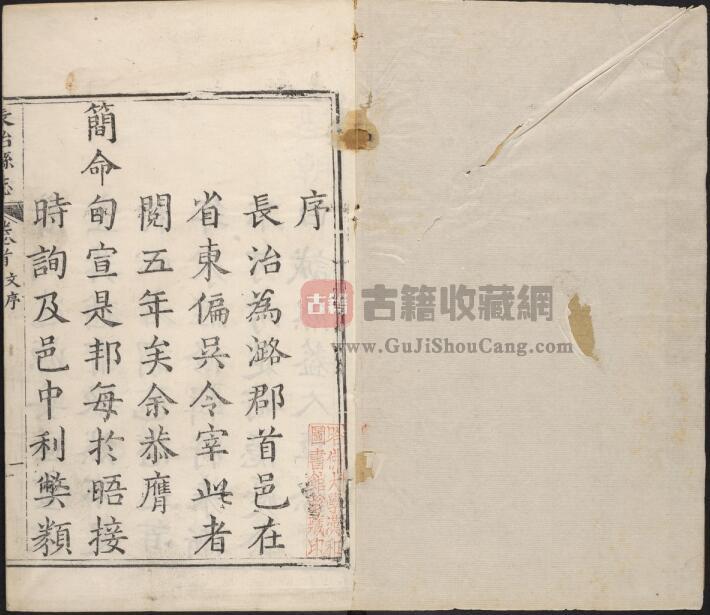 序
長治為潞郡首邑在
省東偏吳令宰此者
閱五年矣余恭膺
簡命旬宣是邦每於晤接
時詢及邑中利獘類
長治縣志
卷首
文序
一
古籍
古籍收藏網
www.GuJiShouCang.com
圖書館藏印